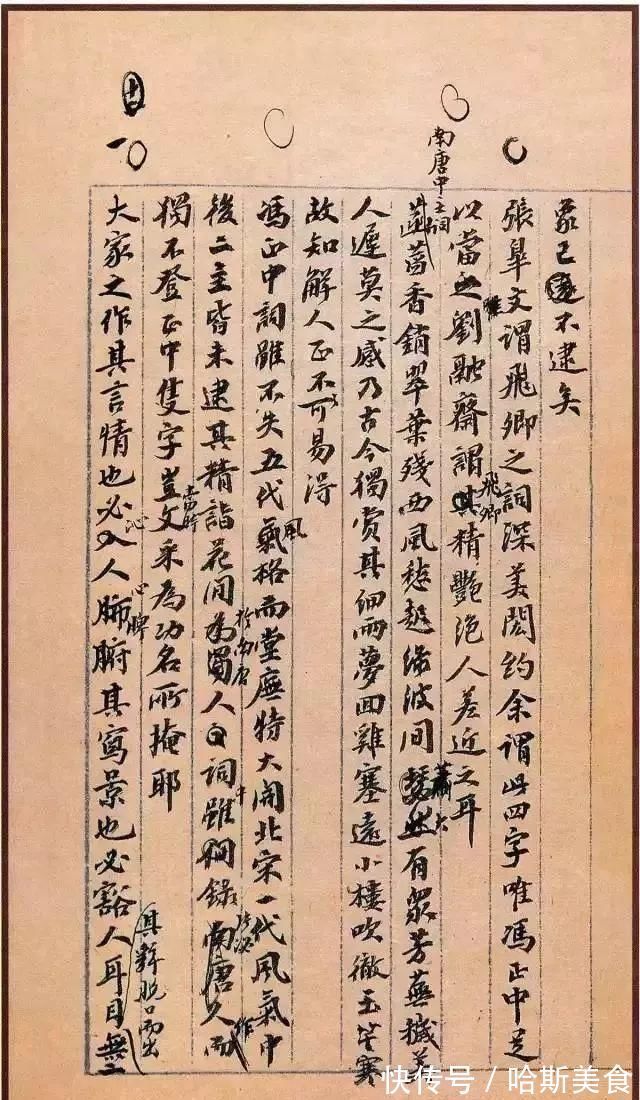 十
一
象已不逮矣
張皐文謂飛卿之詞深美閎約余謂此四字唯馮正中足
以當之劉融齋謂飛卿精艷絕人差近之耳
南唐中主詞
菡萏香銷翠葉殘西風愁起綠波間大有眾芳蕪穢美
人遲莫之感乃古今獨賞其細雨夢回雞塞遠小樓吹徹玉笙寒
故知解人正不可易得
馮正中詞雖不失五代風格而堂廡特大開北宋一代風氣中
後二主皆未逮其精詣花間於南唐人詞中雖錄張泌作而
獨不登正中隻字豈當時文采為功名所掩耶
大家之作其言情也必沁人心脾其寫景也必豁人耳目其辭脫口而出無
快传号／哈斯美食